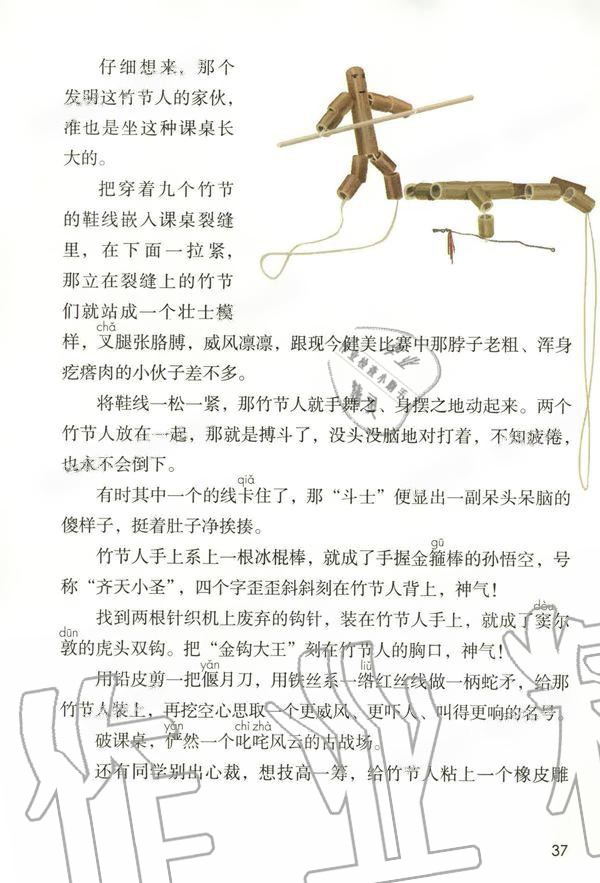 仔细想来，那个
发明这竹节人的家伙，
准也是坐这种课桌长
大的。
把穿着九个竹节
的鞋线嵌入课桌裂缝
里，在下面一拉紧，
那立在裂缝上的竹节
们就站成一个壮士模
chǎ
样，叉腿张胳膊，威风凛凛，跟现今健美比赛中那脖子老粗、浑身
疙瘩肉的小伙子差不多。
将鞋线一松一紧，那竹节人就手舞之、身摆之地动起来。两个
竹节人放在一起，那就是搏斗了，没头没脑地对打着，不知疲倦，
也永不会倒下。
qiǎ
有时其中一个的线卡住了，那“斗士”便显出一副呆头呆脑的
傻样子，挺着肚子净挨揍。
gū
竹节人手上系上一根冰棍棒，就成了手握金箍棒的孙悟空，号
称“齐天小圣”，四个字歪歪斜斜刻在竹节人背上，神气！
dòu
找到两根针织机上废弃的钩针，装在竹节人手上，就成了窦尔
dūn
敦的虎头双钩。把“金钩大王”刻在竹节人的胸口，神气！
yǎn liǔ
用铅皮剪一把偃月刀，用铁丝系一绺红丝线做一柄蛇矛，给那
竹节人装上，再挖空心思取一个更威风、更吓人、叫得更响的名号。
yǎn chì zhà
破课桌，俨然一个叱咤风云的古战场。
还有同学别出心裁，想技高一筹，给竹节人粘上一个橡皮雕
37
作业精